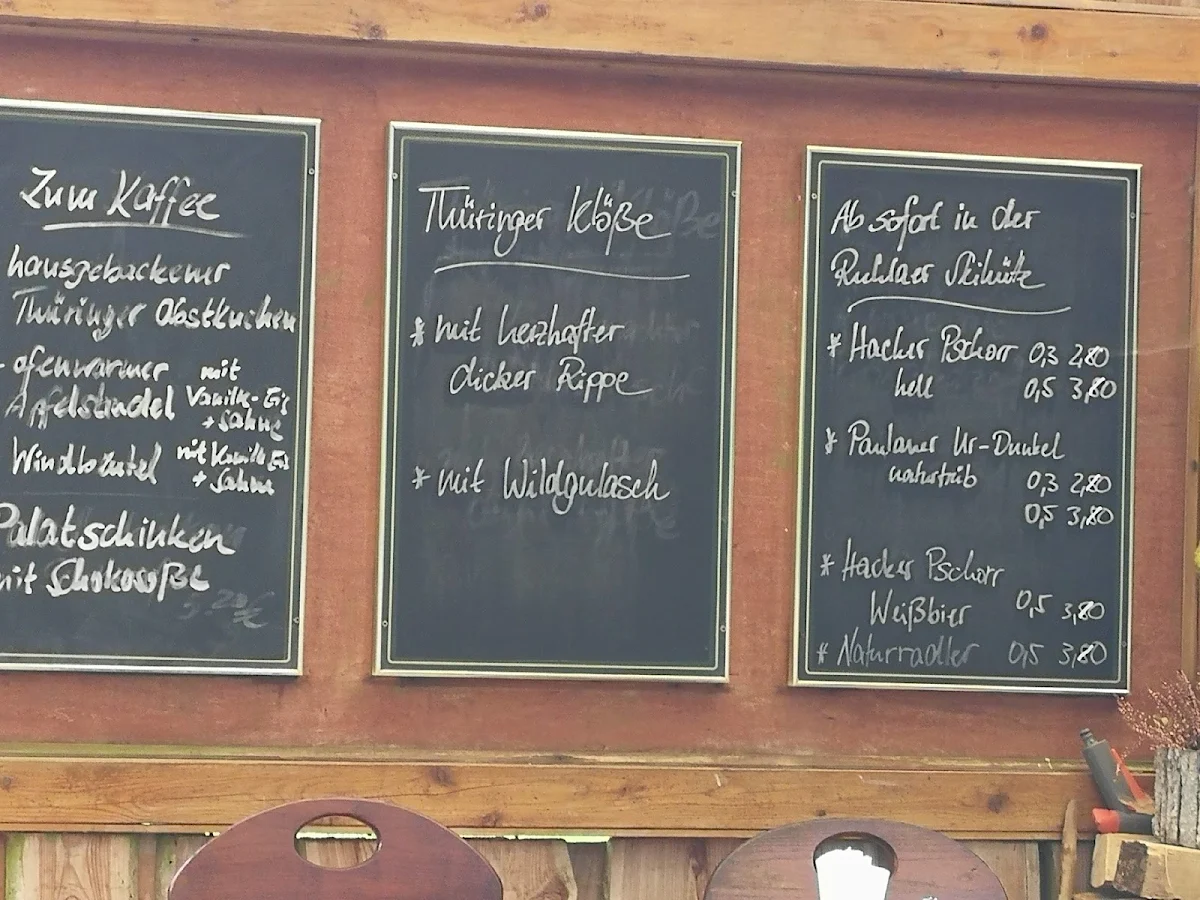 Zum Kaffee
hausgebackener
Thüringer Obstkuchen
- ofenwarmer mit
Apfelstrudel Vanille-Eis
+ Sahne
Windbeutel mit Vanille Eis
+ Sahne
Palatschinken
mit Schokosoße
3,20€
Thüringer Klöße
* mit herzhafter
dicker Rippe
* mit Wildgulasch
Ab sofort in der
Ruhlaer Skihütte
* Hacker Pschorr 0,3 2,80
hell 0,5 3,80
* Paulaner Ur-Dunkel
naturtrüb 0,3 2,80
0,5 3,80
* Hacker Pschorr
Weißbier 0,5 3,80
* Naturradler 0,5 3,80